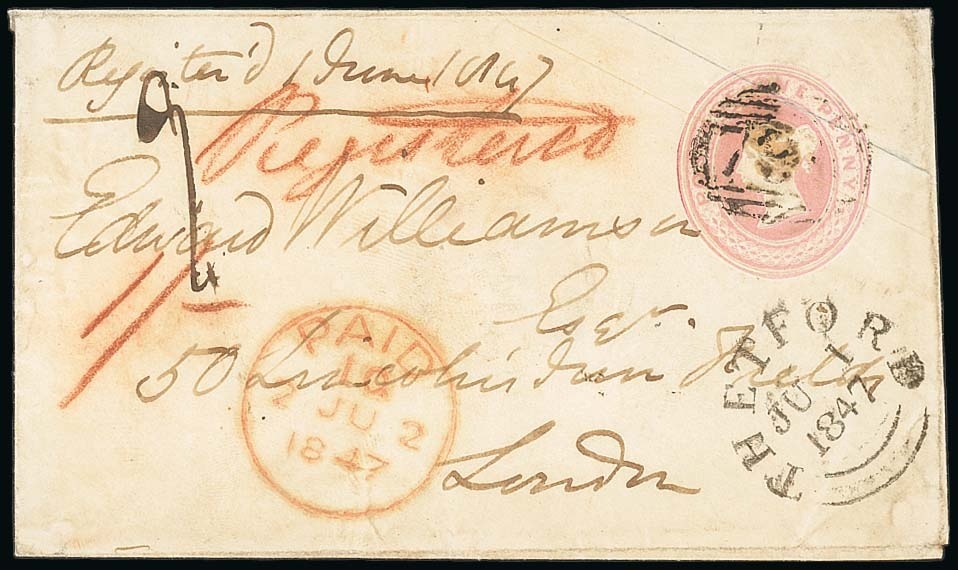 Register'd 1 June 1847
Registered
ONE PENNY
Edward Williamson
Esqr.
1/-
50 Lincoln's Inn Fields
London
PAID
JU 2
1847
THETFORD
JU 1
1847